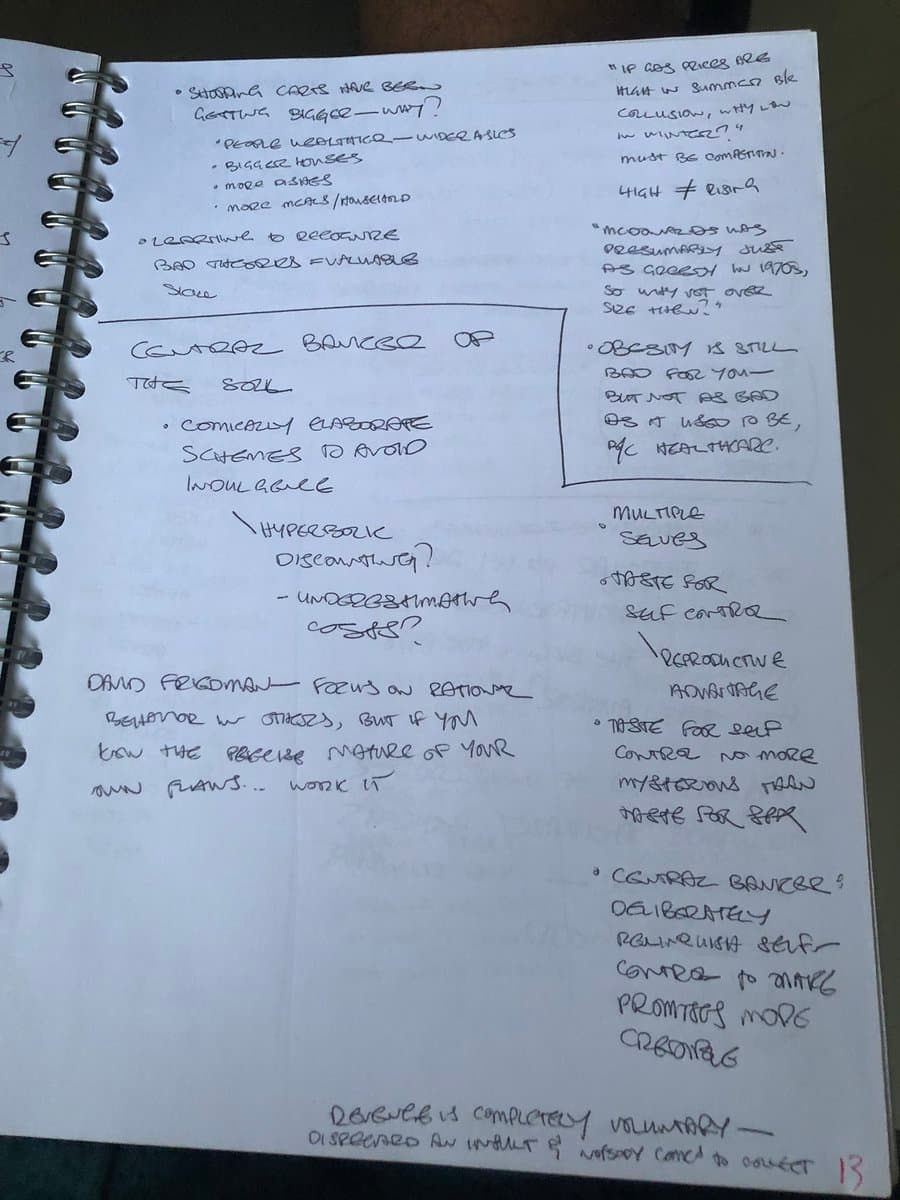 • SHOPPING CARTS HAVE BEEN
GETTING BIGGER — WHY?
• PEOPLE WEALTHIER — WIDER AISLES
• BIGGER HOUSES
• MORE DISHES
• MORE MEALS/HOUSEHOLD
• LEARNING TO RECOGNIZE
BAD THEORIES = VALUABLE
"IF GAS PRICES ARE
HIGH IN SUMMER B/C
COLLUSION, WHY LOW
IN WINTER?"
MUST BE COMPETITION.
HIGH ≠ RISING
"MCDONALDS WAS
PRESUMABLY JUST
AS GREEDY IN 1970S,
SO WHY NOT OVER
SIZE THEN?"
• OBESITY IS STILL
BAD FOR YOU —
BUT NOT AS BAD
AS IT USED TO BE,
B/C HEALTHCARE.
CENTRAL BANKER OF
THE SOUL
• COMICALLY ELABORATE
SCHEMES TO AVOID
INDULGENCE
\HYPERBOLIC
DISCOUNTING?
- UNDERESTIMATING
COSTS?
DAVID FRIEDMAN — FOCUS ON RATIONAL
BEHAVIOR IN OTHERS, BUT IF YOU
KNOW THE PRECISE NATURE OF YOUR
OWN FLAWS... WORK IT
• MULTIPLE
SELVES
• TASTE FOR
SELF CONTROL
\REPRODUCTIVE
ADVANTAGE
• TASTE FOR SELF
CONTROL NO MORE
MYSTERIOUS THAN
TASTE FOR SEX
• CENTRAL BANKER:
DELIBERATELY
RELINQUISH SELF-
CONTROL TO MAKE
PROMISES MORE
CREDIBLE
REVENGE IS COMPLETELY VOLUNTARY —
DISREGARD AN INSULT & NOBODY COMES TO COLLECT
13